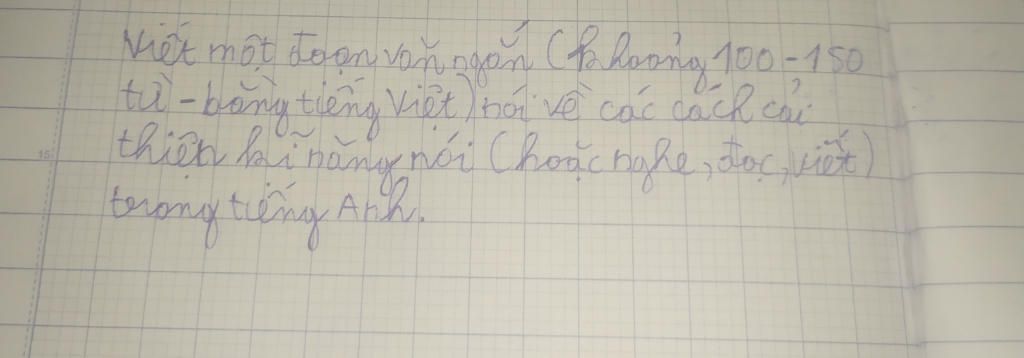 Viết một đoạn văn ngắn (khoảng 100-150
từ - bằng tiếng Việt) nói về các cách cải
thiện kĩ năng nói (hoặc nghe, đọc, viết)
trong tiếng Anh.